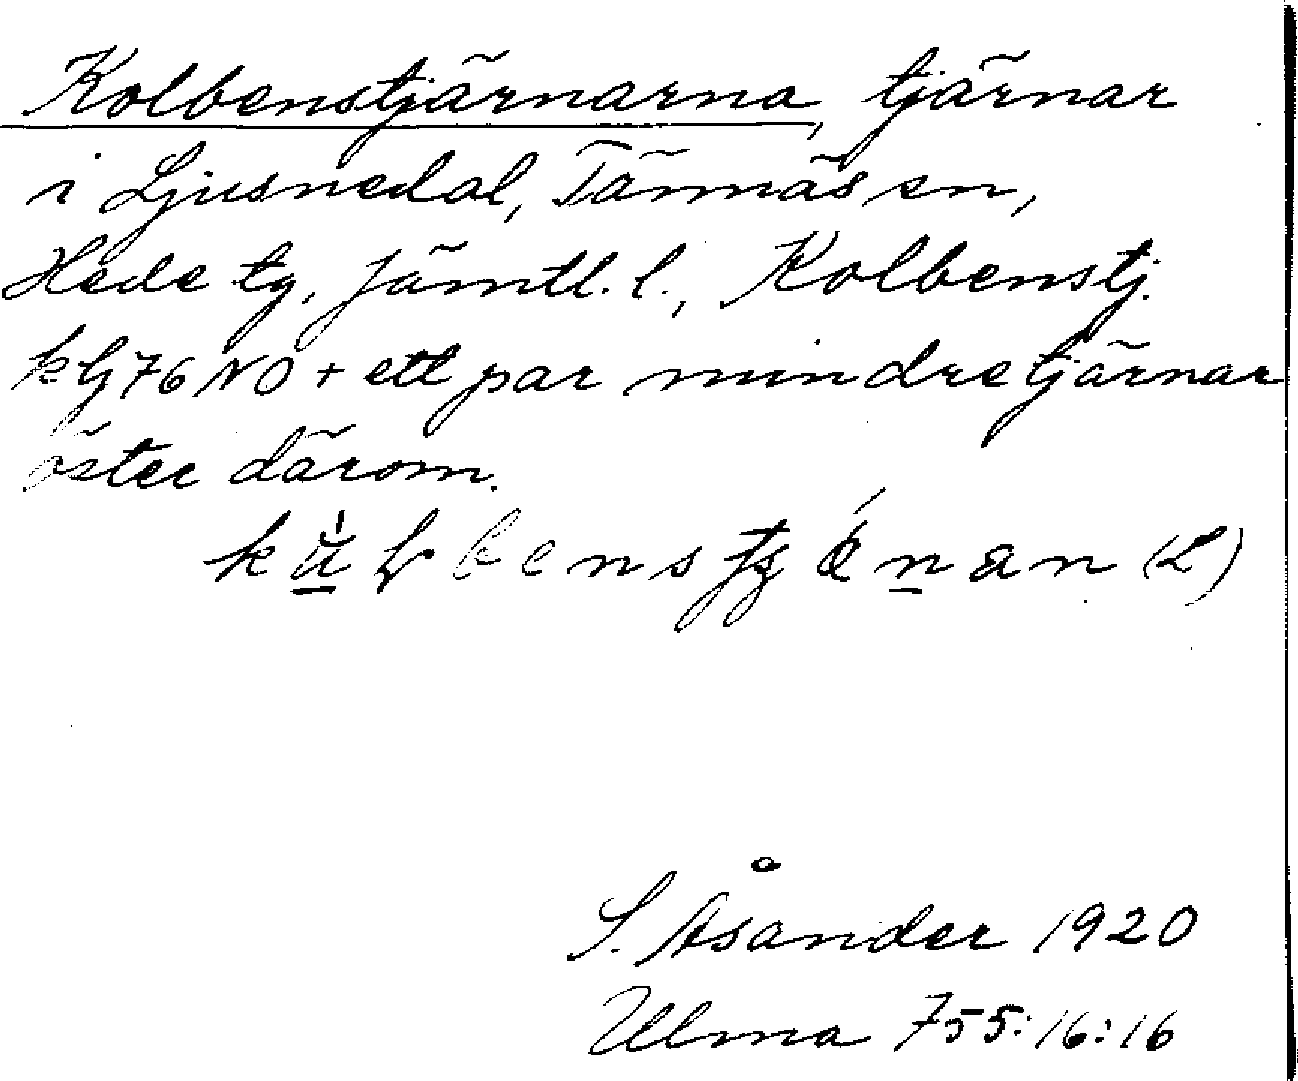 Kolbenstjärnarna, tjärnar
i Ljusnedal, Tännäs sn,
Hede tg, Jämtl. l., Kolbenstj.
kbj 76 NO + ett par mindre tjärnar
öster därom.
(L)
S. Åsander 1920
Ulma 755:16:16